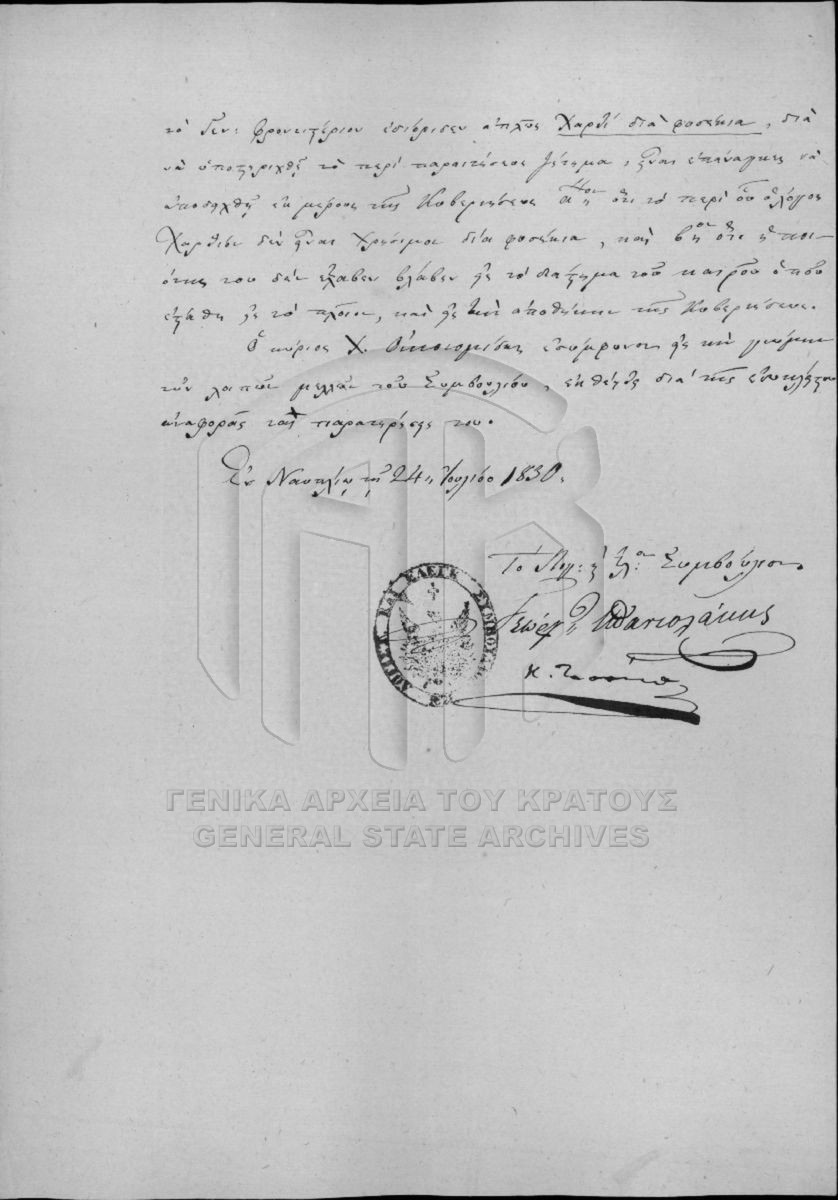 τὸ Γεν: Φροντιστήριον ἐδιόρισεν ἁπλῶς Χαρτὶ διὰ φυσέκια, διὰ
νὰ ὑποστηριχθῇ τὸ περὶ παραιτήσεως ζήτημα, εἶναι ἐπάναγκες νὰ
ἀποδειχθῇ ἐκ μέρους τῆς Κυβερνήσεως Α ὅτι τὸ περὶ οὗ ὁ λόγος
Χαρτίον δὲν εἶναι χρήσιμον διὰ φυσέκια, καὶ β ὅτι ἡ ποι-
ότης του δὲν ἔλαβεν βλάβην εἰς τὸ διάστημα τοῦ καιροῦ ὁποῦ
ἐστάθη εἰς τὸ πλοῖον, καὶ εἰς τὴν ἀποθήκην τῆς Κυβερνήσεως.
Ὁ κύριος Χ. Οἰκονομίδης ἐσύμφωνει εἰς τὴν γνώμην
τῶν λοιπῶν μελῶν τοῦ Συμβουλίου, ἐκθέτως διὰ τῆς
ἀναφορᾶς τὰς παρατηρήσεις του.
Ἐν Ναυπλίῳ τῇ 24 Ἰουλίου 1830.
Τὸ Λογ: κ Ἐλ: Συμβούλιον.
ΛΟΓΙΣΤ. ΚΑΙ ΕΛΕΓΚ. ΣΥΜΒΟΥΛΙΟΝ
Γεώργ
Κ.
ΓΕΝΙΚΑ ΑΡΧΕΙΑ ΤΟΥ ΚΡΑΤΟΥΣ
GENERAL STATE ARCHIVES